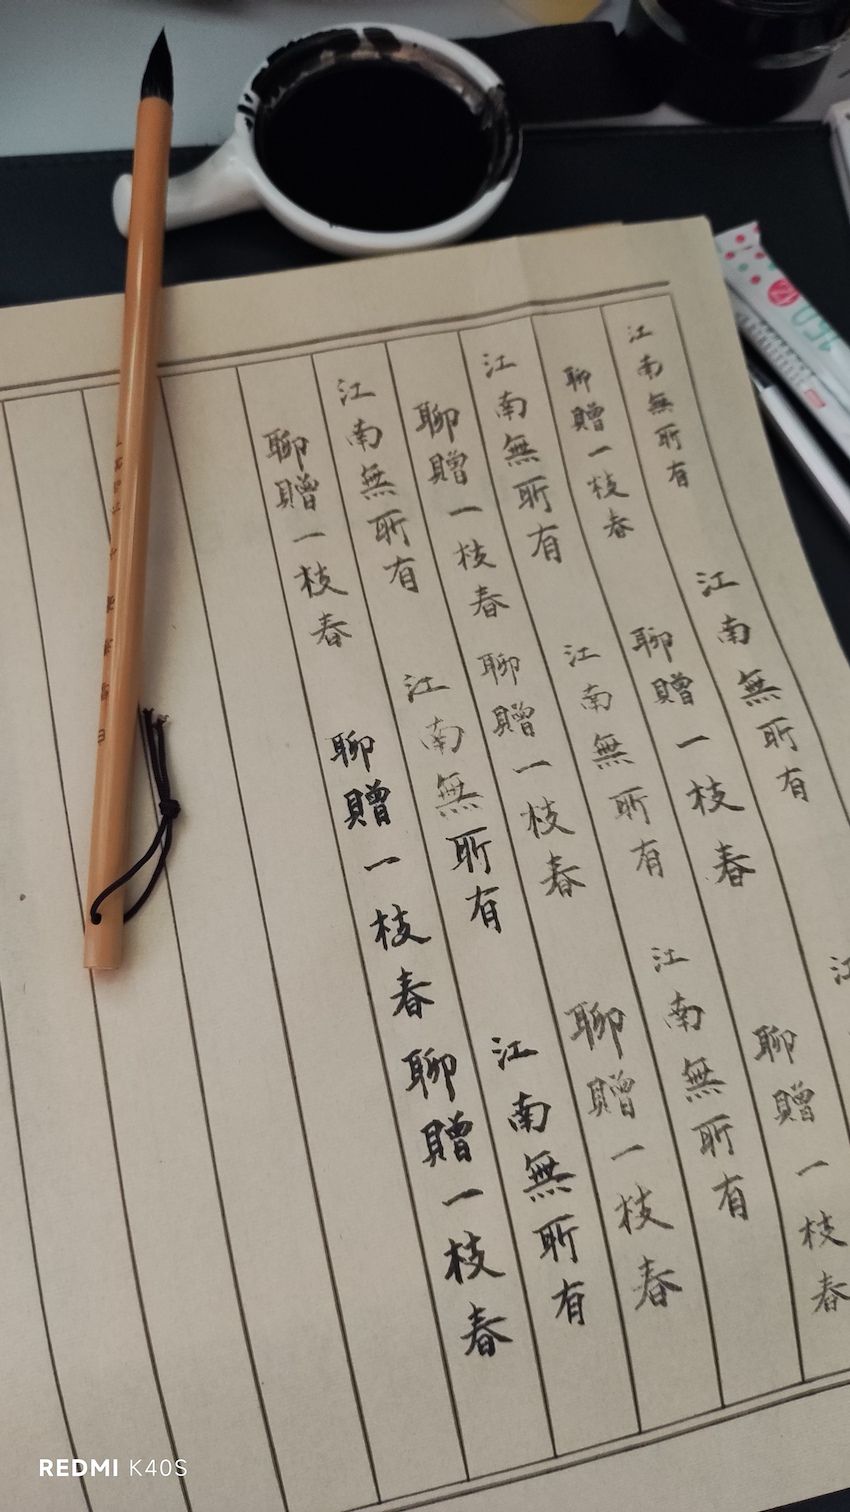 江南無所有
江南無所有
江
聊贈一枝春
聊贈一枝春
聊贈一枝春
江南無所有
江南無所有
江南無所有
聊贈一枝春
聊贈一枝春
聊贈一枝春
江南無所有
江南無所有
江南無所有
聊贈一枝春
聊贈一枝春
聊贈一枝春
REDMI K40S